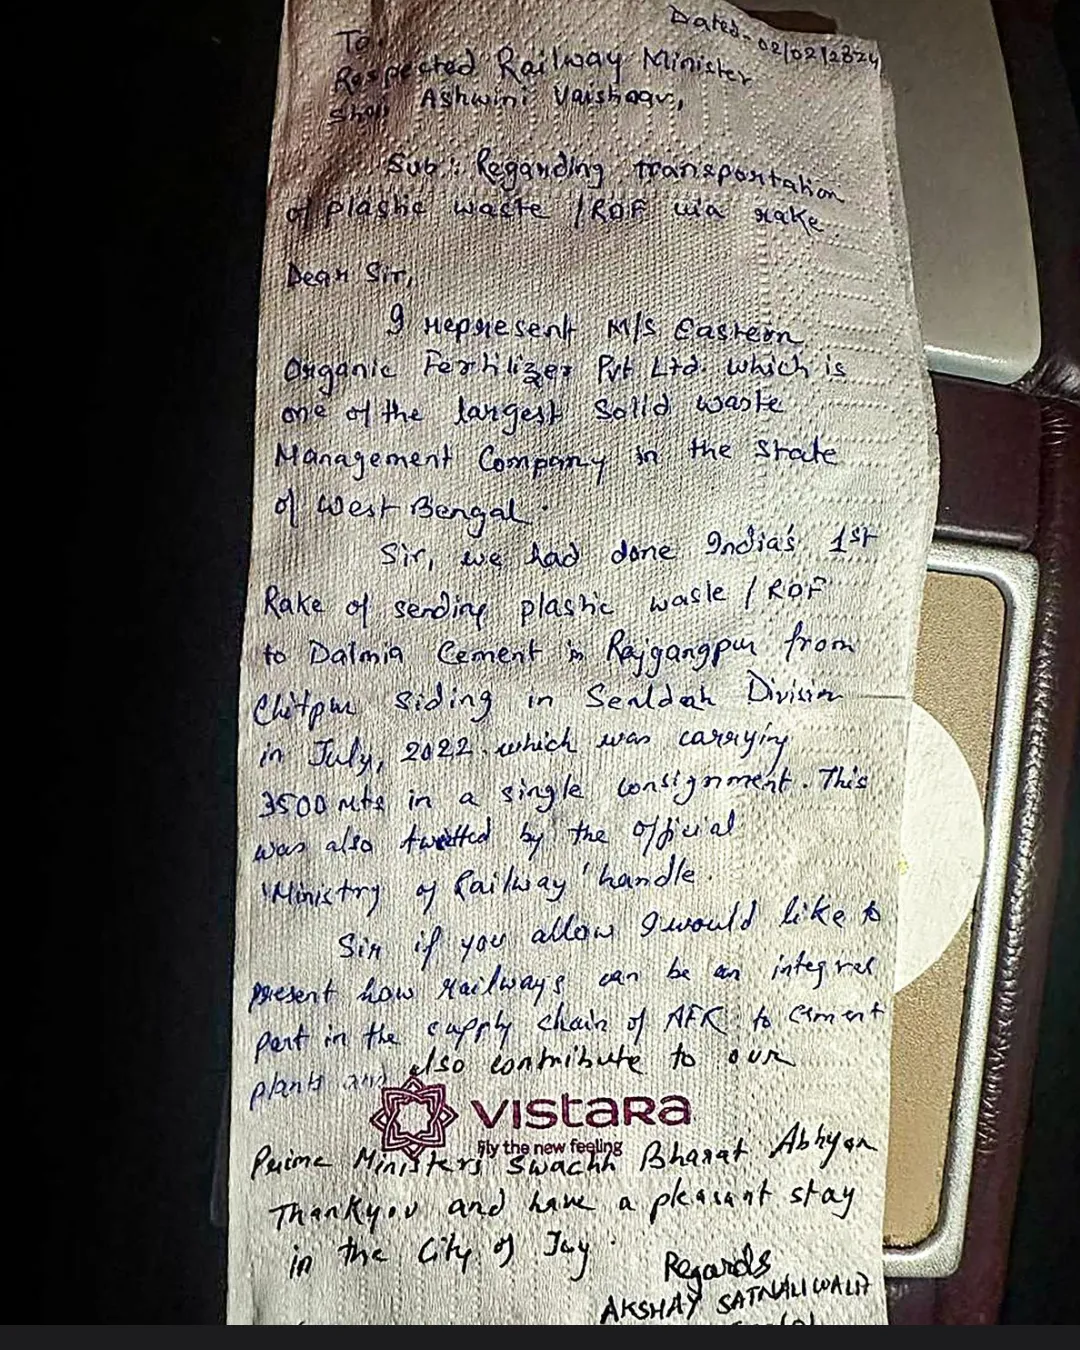 Dated- 02/02/2024
To,
Respected Railway Minister
Shri Ashwini Vaishnav,
Sub: Regarding transportation
of plastic waste / RDF via rake.
Dear Sir,
I represent M/S Eastern
Organic Fertilizer Pvt Ltd. which is
one of the largest solid waste
Management Company in the state
of West Bengal.
Sir, we had done India's 1st
Rake of sending plastic waste / RDF
to Dalmia Cement in Rajgangpur from
Chitpur siding in Sealdah Division
in July, 2022 which was carrying
3500 mts in a single consignment. This
was also twitted by the official
'Ministry of Railway' handle.
Sir if you allow I would like to
present how railways can be an integral
part in the supply chain of AFR to cement
plants and also contribute to our
VISTARA
fly the new feeling
Prime Ministers Swachh Bharat Abhyan
Thankyou and have a pleasant stay
in the City of Joy.
Regards
AKSHAY SATNALIWALA